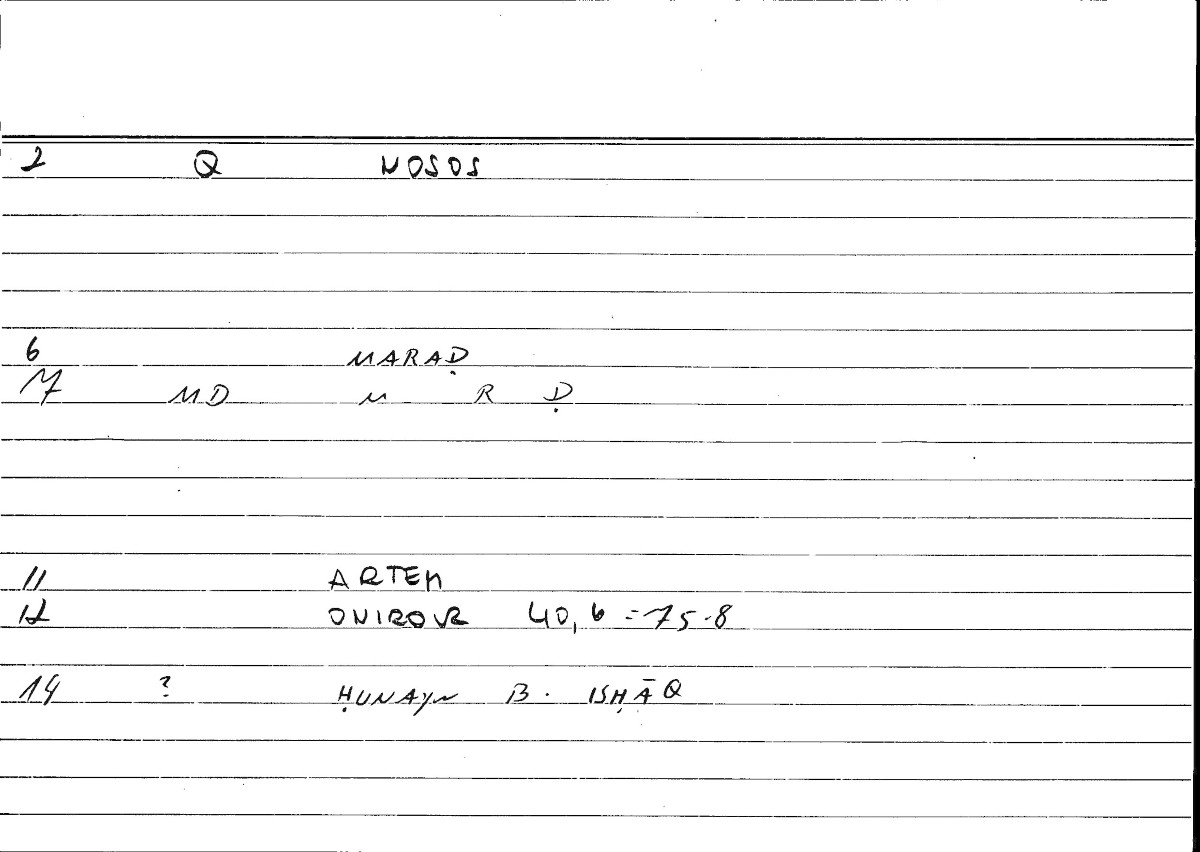 2 Q NOSOS
6 MARAḌ
7 MD M R Ḍ
11 ARTEM
12 ONIROUR 40,6 = 75-8
14 ? ḤUNAYN B. ISḤĀQ